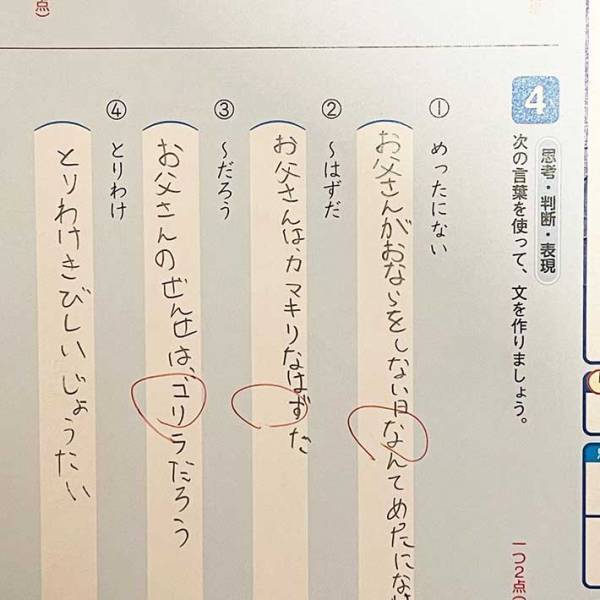 4
思考・判断・表現
次の言葉を使って、文を作りましょう。
一つ2点
① めったにない
お父さんがおならをしない日なんてめったにな
② ～はずだ
お父さんは、カマキリなはずだ
③ ～だろう
お父さんのぜんせは、ゴリラだろう
④ とりわけ
とりわけきびしいじょうたい
点）